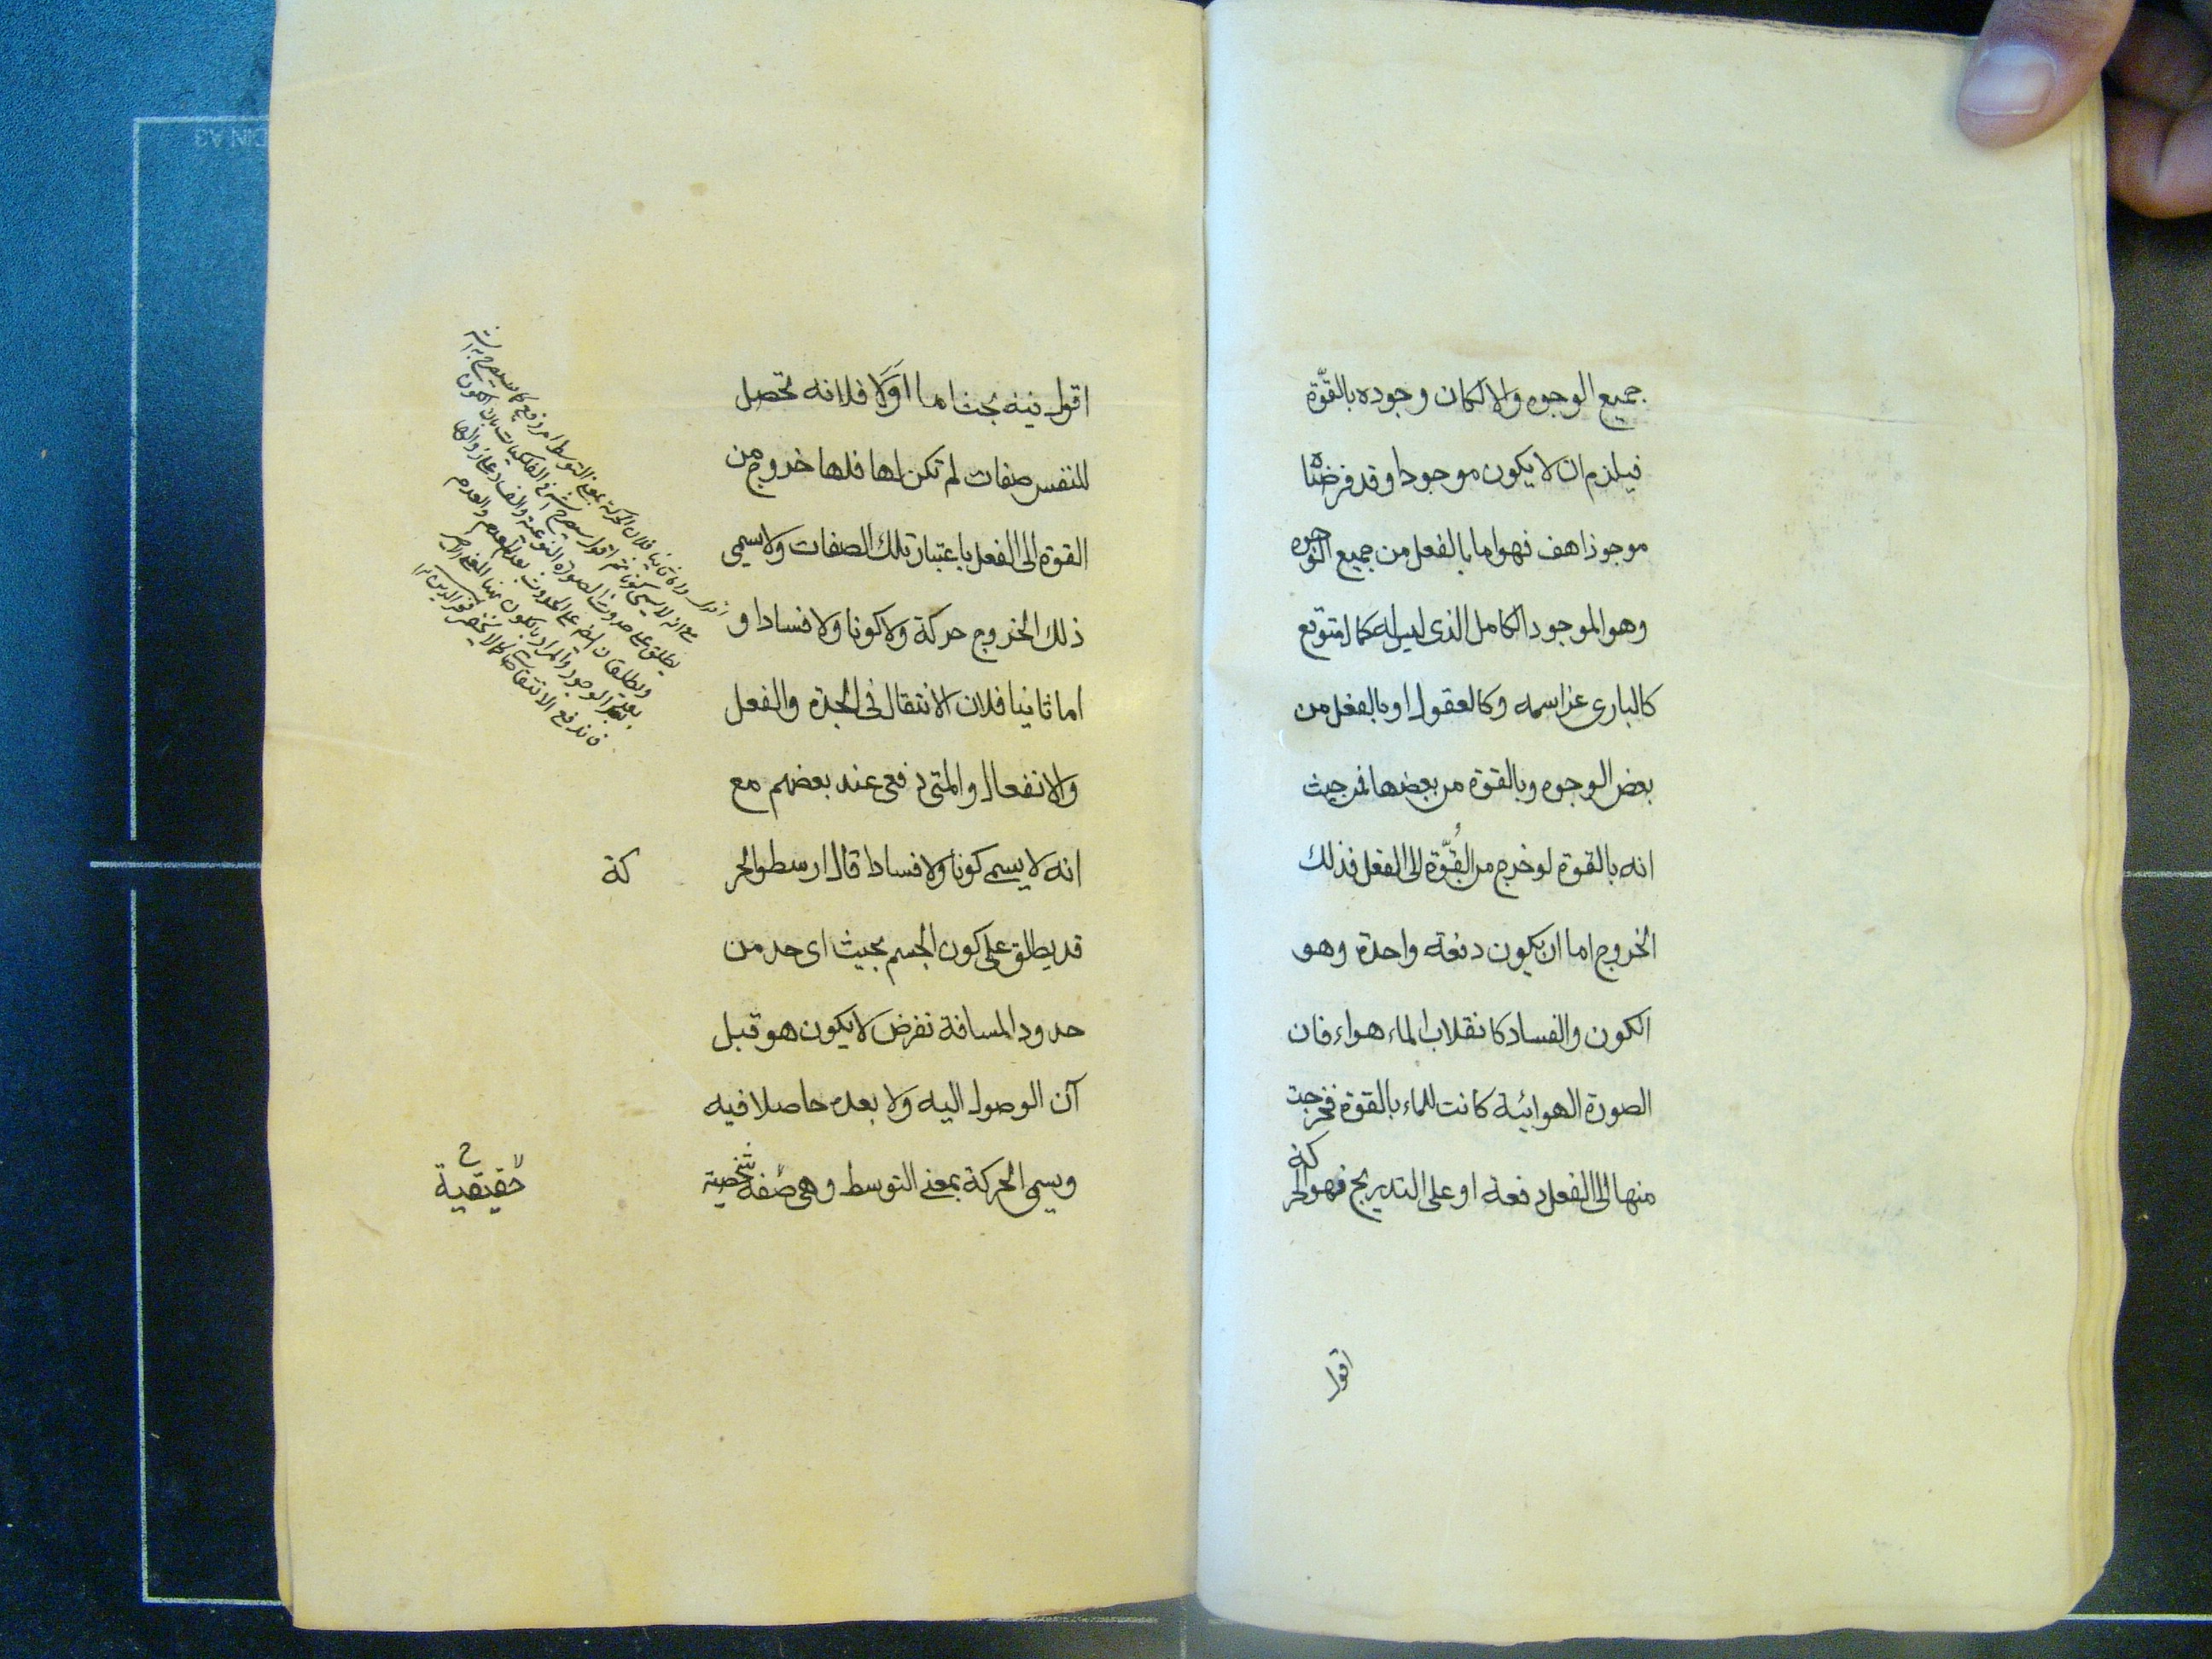 جميع الوجوه والا لكان وجوده بالقوّة
فيلزم ان لا يكون موجودا وقد فرضناه
موجودا هف فهو اما بالفعل من جميع الوجوه
وهو الموجود الكامل الذى ليس له كمال متوقع
كالبارى عز اسمه وكالعقول او بالفعل من
بعض الوجوه وبالقوة من بعضها فمن حيث
انه بالقوة لو خرج من القُوّة الى الفعل فذلك
الخروج اما ان يكون دفعة واحدة وهو
الكون والفساد كانقلاب الماء هواء فان
الصورة الهوائية كانت للماء بالقوة فخرجت
منها الى الفعل دفعة او على التدريج فهو الحركة
اقول
اقول فيه بحث اما اوّلا فلانه تحصل
للنفس صفات لم تكن لها فلها خروج من
القوة الى الفعل باعتبار تلك الصفات ولا يسمى
ذلك الخروج حركة ولا كونا ولا فسادا و
اما ثانيا فلان الانتقال فى الجدة والفعل
والانفعال والمتى دفعى عند بعضهم مع
انه لا يسمى كونا ولا فسادا قال ارسطو الحر كة
قد يطلق على كون الجسم بحيث اى حد من
حدود المسافة تفرض لا يكون هو قبل
آن الوصول اليه ولا بعده حاصلا فيه
ويسمى الحركة بمعنى التوسط وهى صفة شخصية
حقيقية